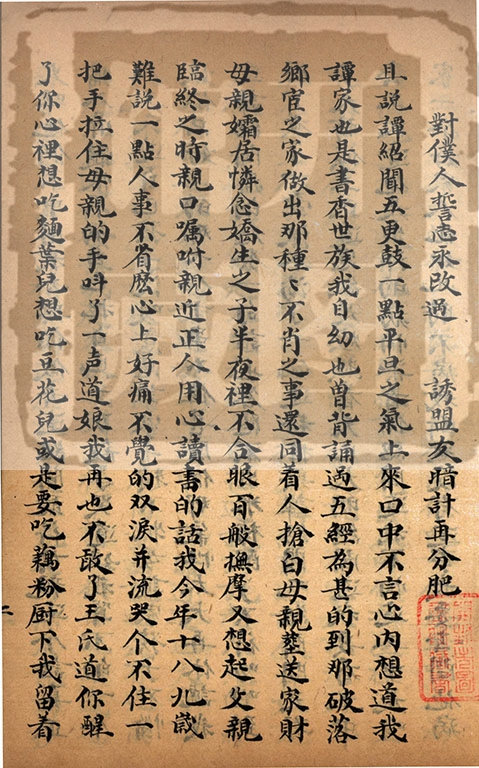 對僕人誓志永改過 誘盟友暗計再分肥
且說譚紹聞五更鼓一點平旦之氣上來口中不言心內想道我
譚家也是書香世族我自幼也曾背誦過五經為甚的到那破落
鄉宦之家做出那種〻不肖之事還同着人搶白母親塟送家財
母親孀居憐念嬌生之子半夜裡不合眼百般撫摩又想起父親
臨終之時親口嘱咐親近正人用心讀書的話我今年十八九歲
難說一點人事不省麽心上好痛不覺的双淚并流哭个不住一
把手拉住母親的手呌了一声道娘我再也不敢了王氏道你醒
了你心裡想吃麵葉兒想吃豆花兒或是要吃藕粉厨下我留着